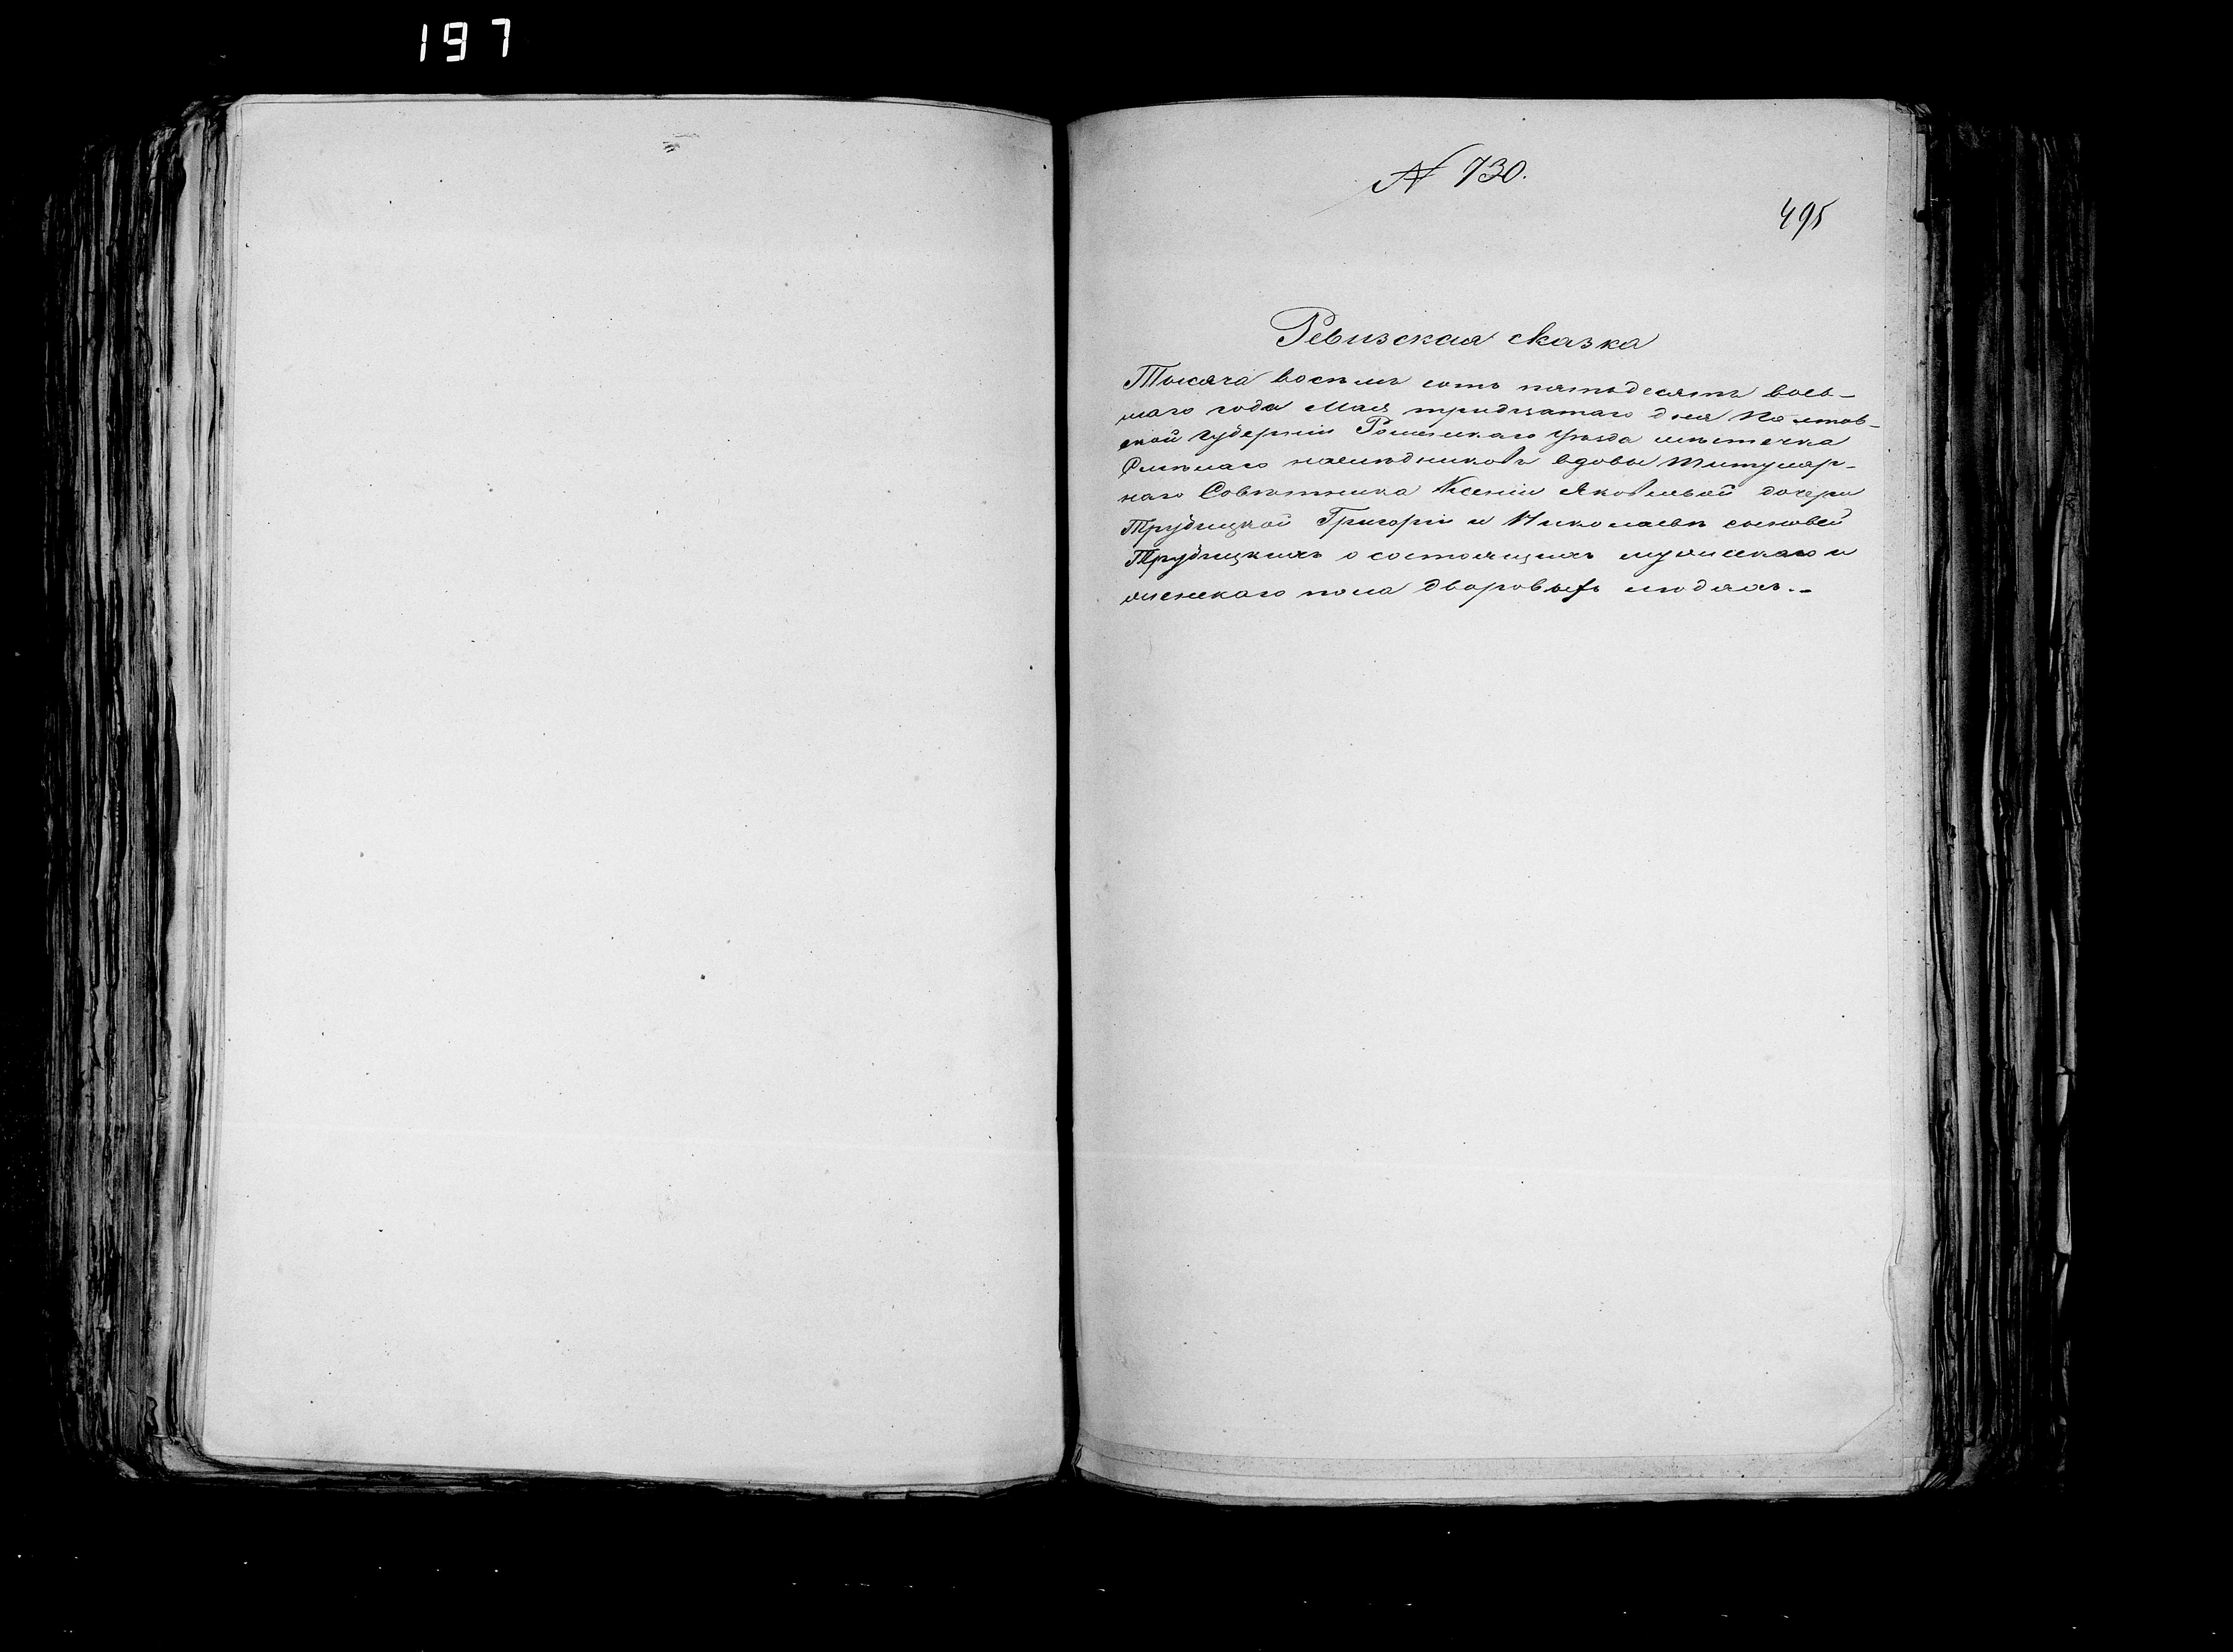 197
№ 730.
495
Ревизская сказка
Тысяча восемь сотъ пятьдесятъ вось-
маго года Мая тридцатаго дня Полтав-
ской губерніи Роменскаго уѣзда мѣстечка
Смѣлаго наслѣдниковъ вдовы титуляр-
наго Совѣтника Ксеніи Яковлевой дочери
Трубицкой Григорія и Николаевъ сыновей
Трубицкихъ о состоящихъ мужескаго и
женскаго пола дворовыхъ людяхъ.-